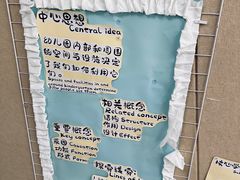 中心思想
Central idea
幼儿园内部和周围
的空间与设施决定
了我们如何利用它
们。
Spaces and facilities in and
around kindergarten determine
how people use them.
相关概念
Related concept
结构 Structure
作用
设计 Design
效果 Effect
重要概念
Key concept
原因 Causation
功能 Function
形式 Form
探究线索:
Lines of